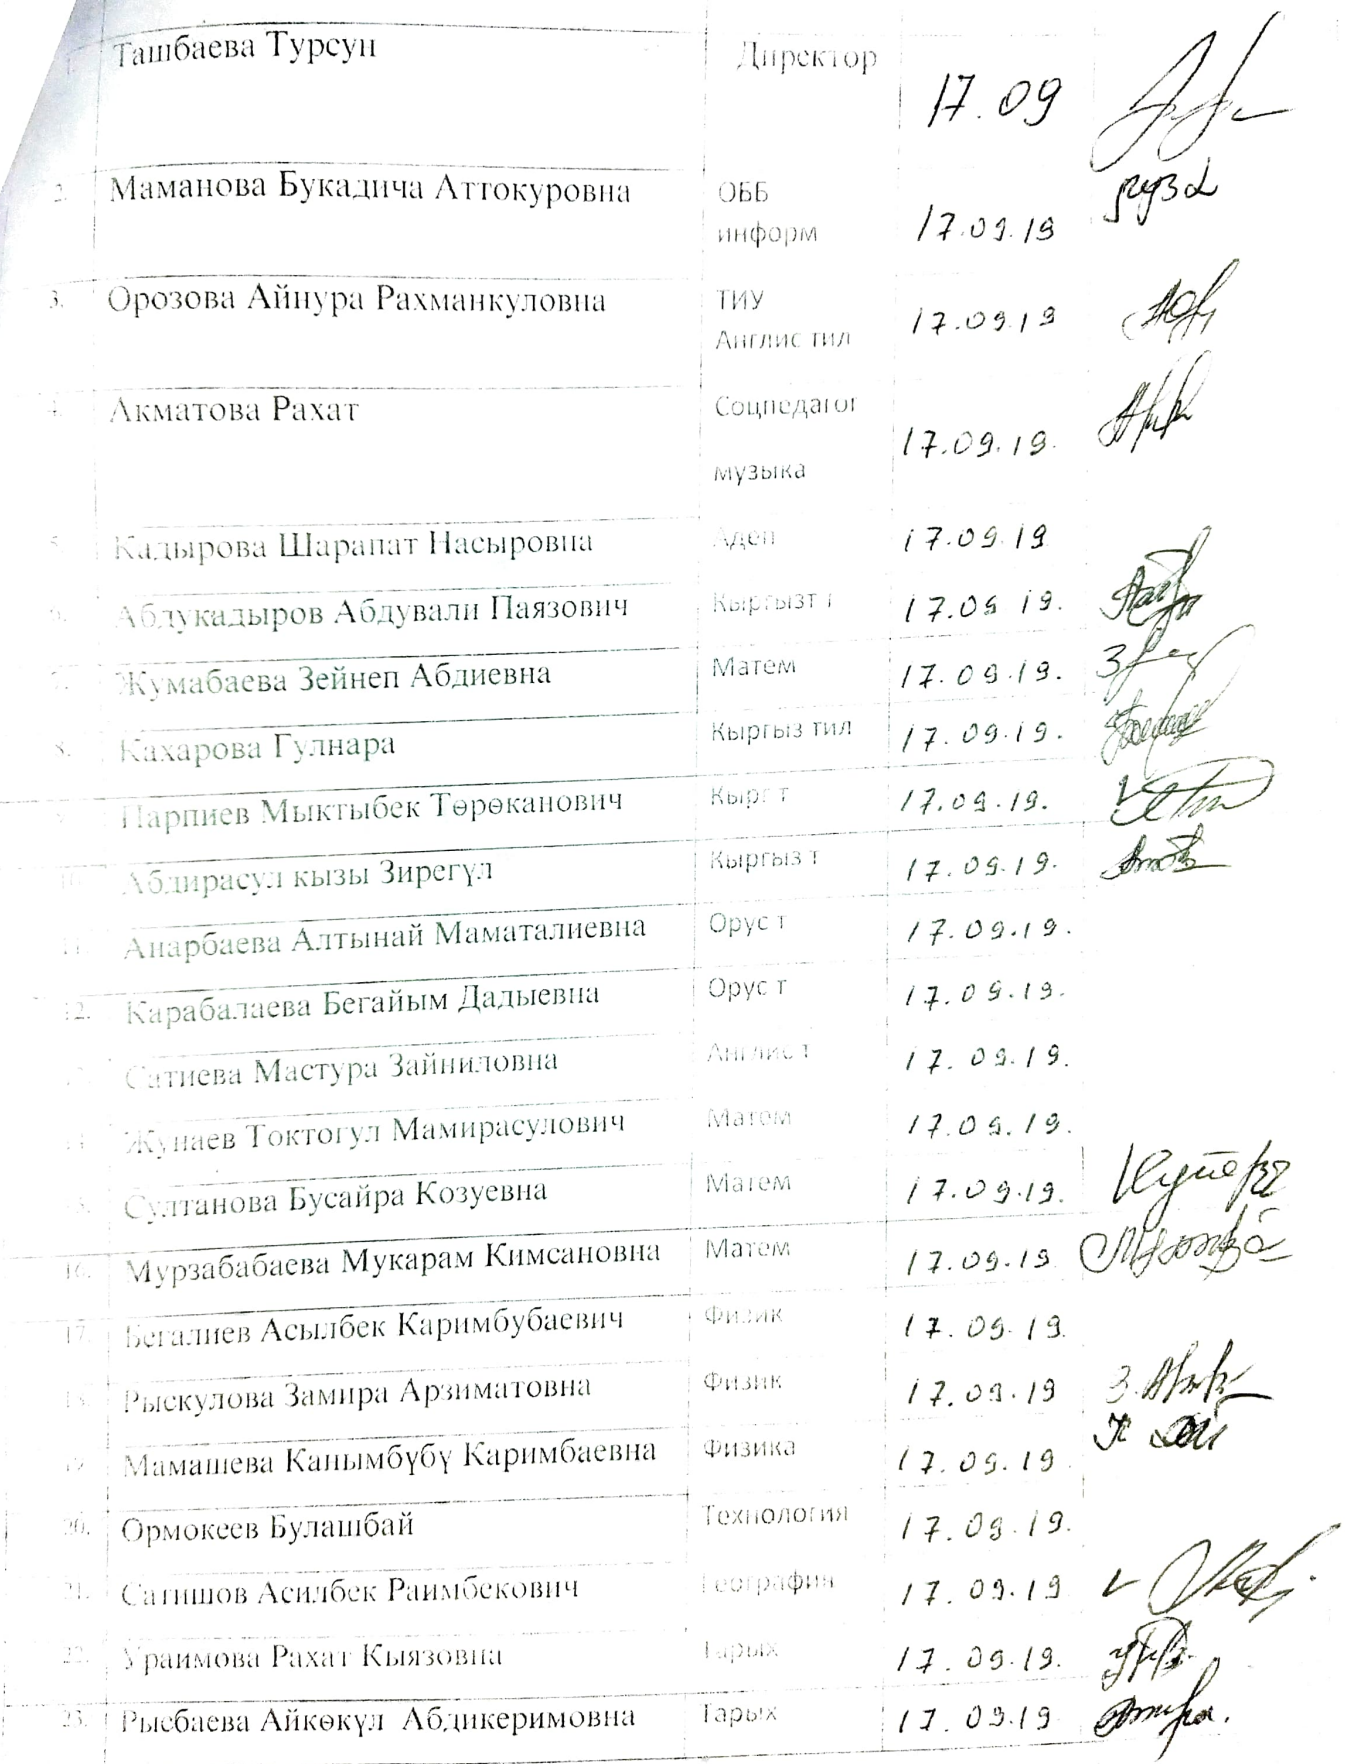 Ташбаева Турсун Директор 17.09
2. Маманова Букадича Аттокуровна ОББ
информ 17.09.19
3. Орозова Айнура Рахманкуловна ТИУ 17.09.19
Англис тил
Акматова Рахат Соцпедагог 17.09.19.
музыка
5. Кадырова Шарапат Насыровна Адеп 17.09.19
6. Абдукадыров Абдували Паязович 17.09 19.
7. Жумабаева Зейнеп Абдиевна Матем 17.09.19.
8. Кахарова Гулнара Кыргыз тил 17.09.19.
Парпиев Мыктыбек Төрөканович Кырг т 17.09.19.
10. Абдирасул кызы Зирегүл Кыргыз т 17.09.19.
11. Анарбаева Алтынай Маматалиевна Орус т 17.09.19.
12. Карабалаева Бегайым Дадыевна Орус т 17.09.19.
Сатиева Мастура Зайниловна Англис т 17.09.19.
Жунаев Токтогул Мамирасулович Матем 17.09.19.
Султанова Бусайра Козуевна Матем 17.09.19.
16. Мурзабабаева Мукарам Кимсановна Матем 17.09.19
17. Бегалиев Асылбек Каримбубаевич Физик 17.09.19.
Рыскулова Замира Арзиматовна Физик 17.09.19
19. Мамашева Канымбүбү Каримбаевна Физика 17.09.19
20. Ормокеев Булашбай Технология 17.09.19.
21. Сатишов Асилбек Раимбекович География 17.09.19
22. Ураимова Рахат Кыязовна Тарых 17.09.19.
23. Рысбаева Айкөкүл Абдикеримовна Тарых 17.09.19